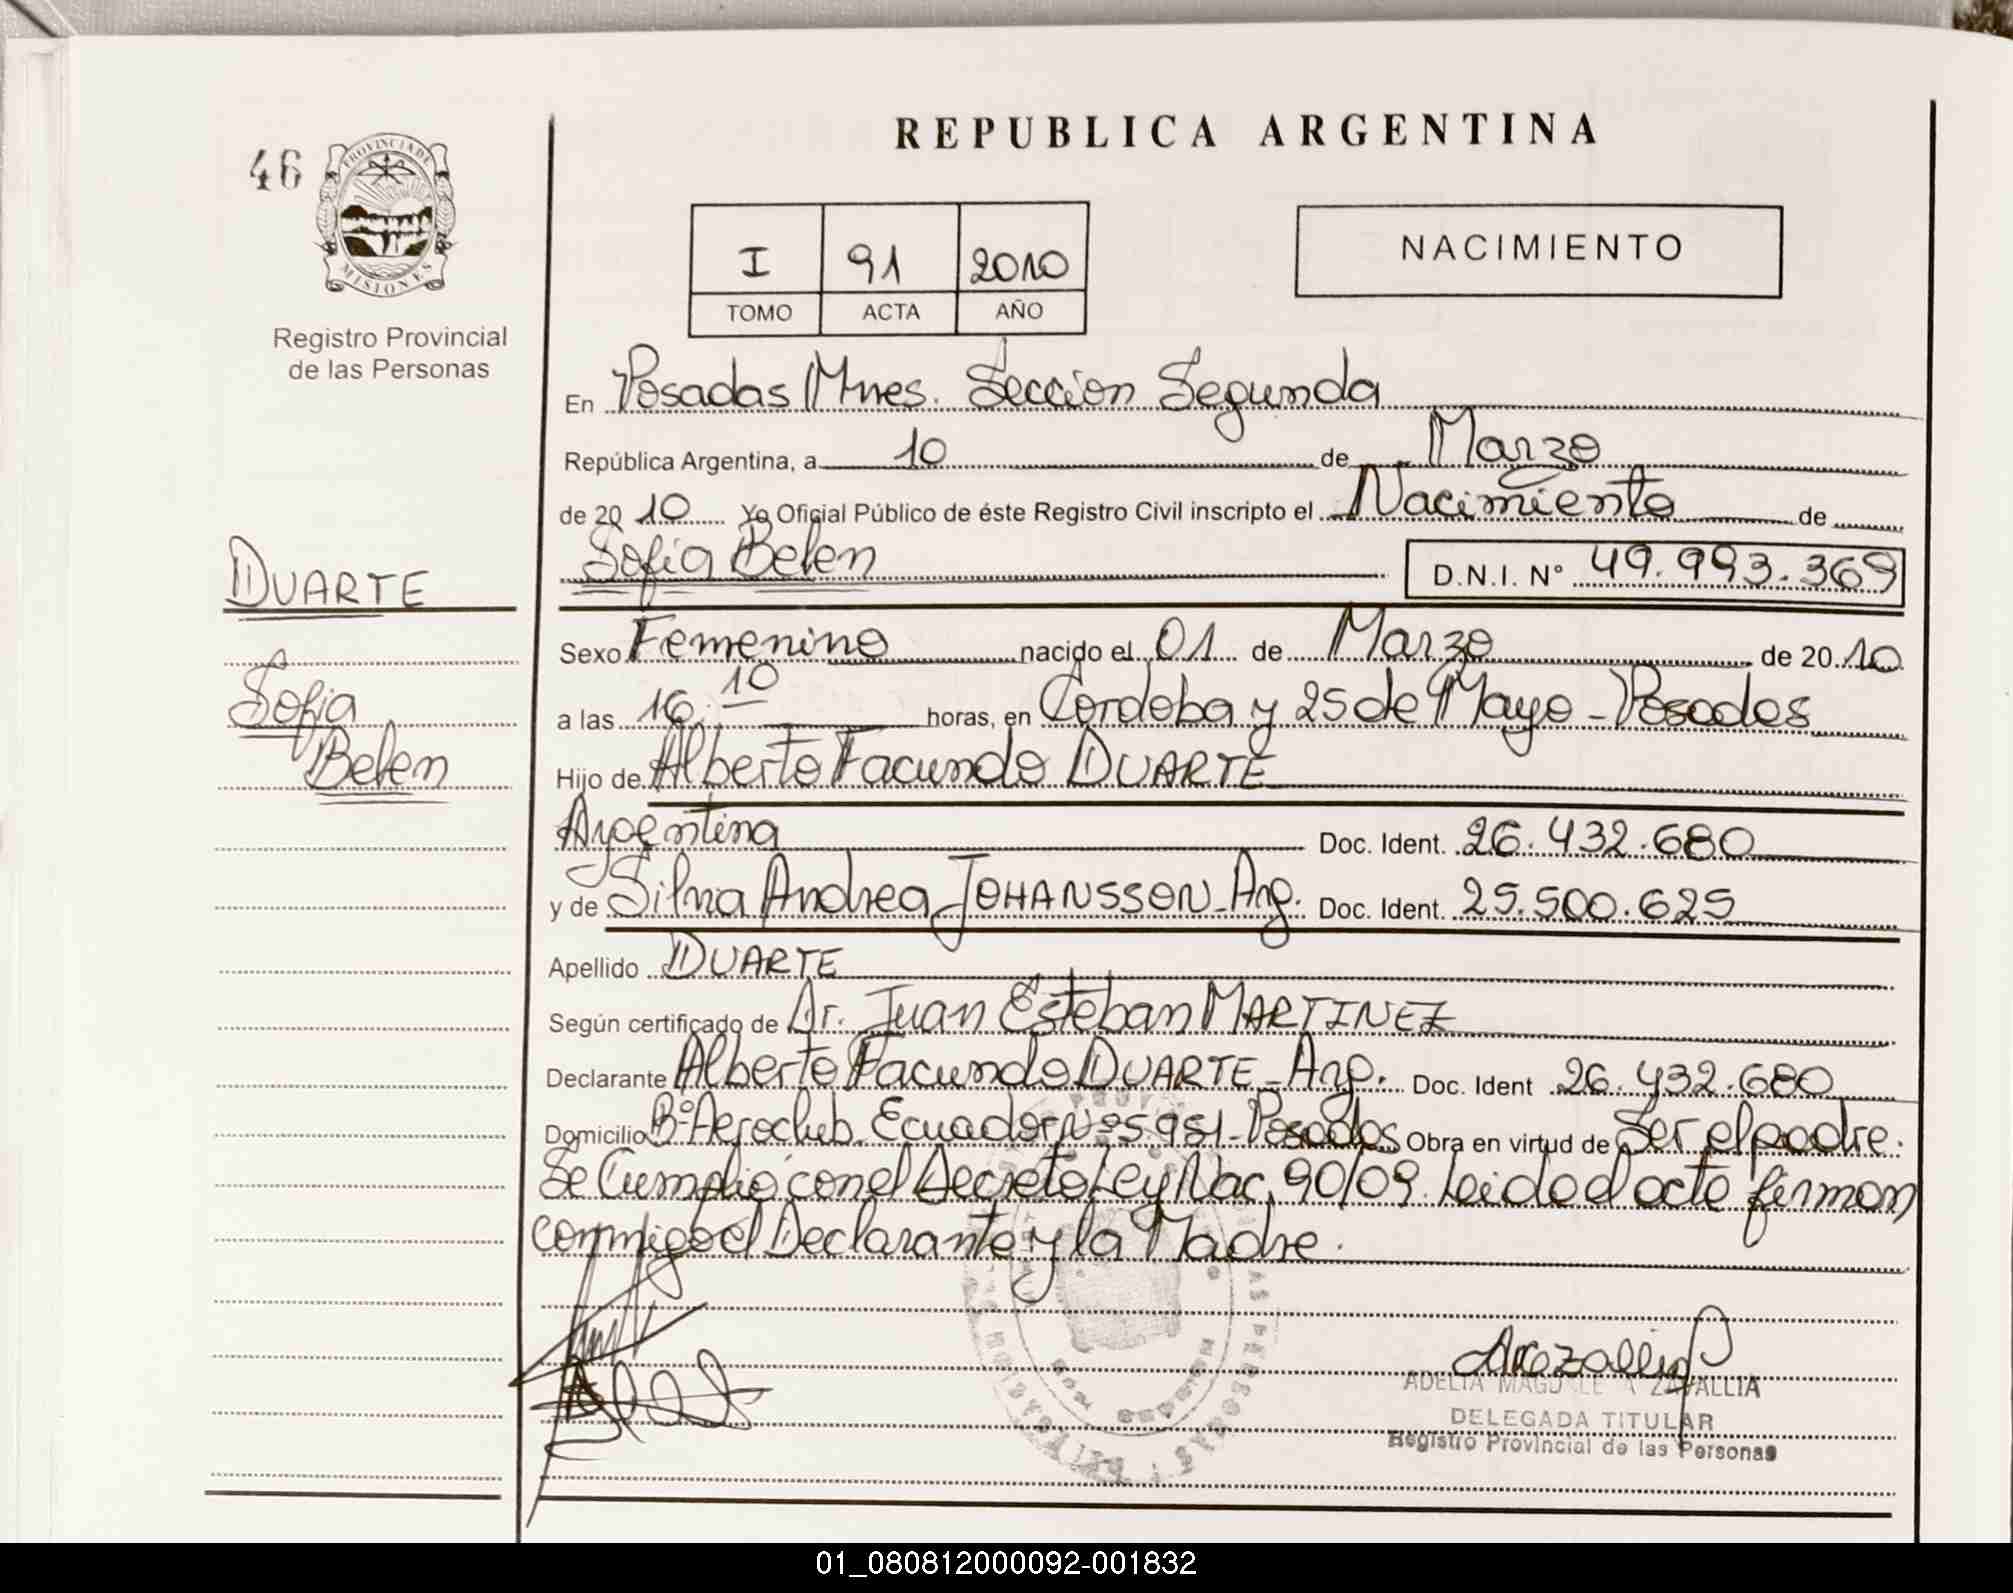 REPUBLICA ARGENTINA
46
PROVINCIA DE
MISIONES
Registro Provincial
de las Personas
NACIMIENTO
I 91 2010
TOMO ACTA AÑO
En Posadas Mnes. Sección Segunda
República Argentina, a 10 de Marzo
de 20 10 Yo Oficial Público de éste Registro Civil inscripto el Nacimiento de
Sofia Belen D.N.I. Nº 49.993.369
DUARTE
Sofia
Belen
Sexo Femenino nacido el 01 de Marzo de 20 10
a las 16:10 horas, en Cordoba y 25 de Mayo - Posadas
Hijo de Alberto Facundo DUARTE
Argentina Doc. Ident. 26.432.680
y de Silvia Andrea JOHANSSON - Arg. Doc. Ident. 25.500.625
Apellido DUARTE
Según certificado de Dr. Juan Esteban MARTINEZ
Declarante Alberto Facundo DUARTE - Arg. Doc. Ident 26.432.680
Domicilio Bº Aeroclub Ecuador Nº 5951 - Posadas Obra en virtud de Ser el padre.
Se Cumplió con el Decreto Ley Nac. 90/09. Leido el acta firman
conmigo el Declarante y la Madre.
ADELIA MAGDALENA ZAVALLIA
DELEGADA TITULAR
Registro Provincial de las Personas
01_080812000092-001832